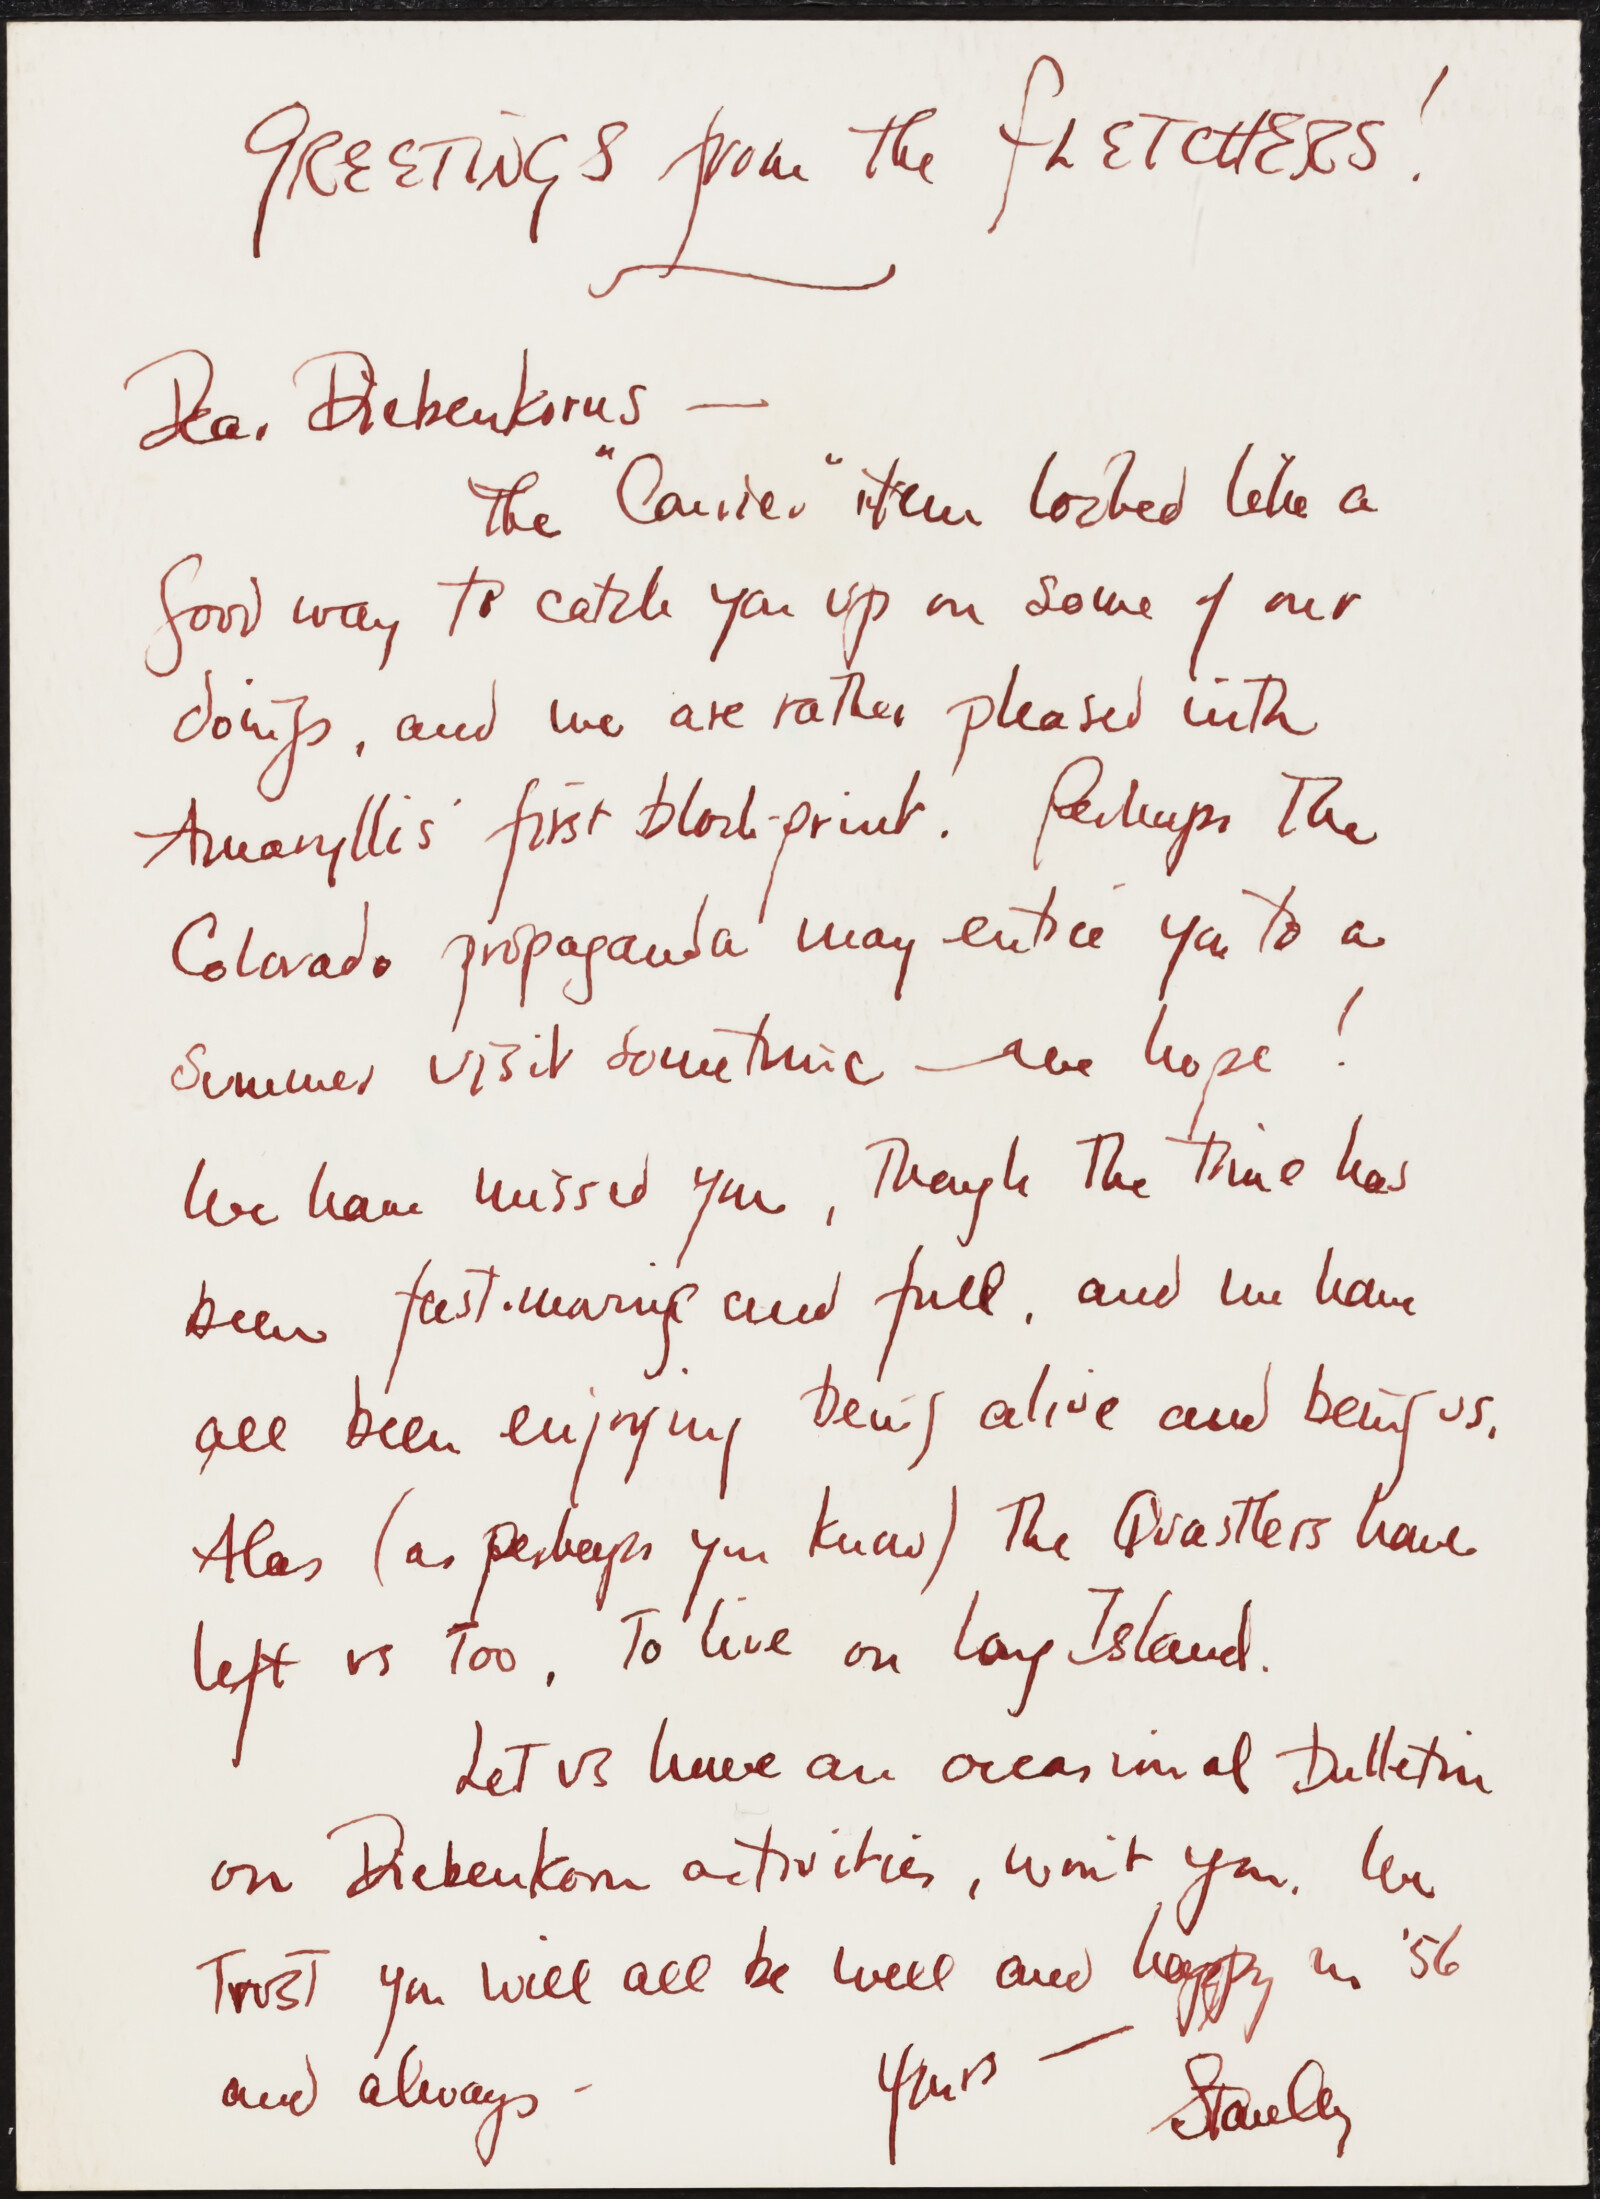 GREETINGS from the FLETCHERS!
Dear Diebenkorns —
The "Courier" item looked like a
good way to catch you up on some of our
doings, and we are rather pleased with
Amaryllis' first block-print. Perhaps the
Colorado propaganda may entice you to a
summer visit sometime — we hope!
We have missed you, though the time has
been fast-moving and full, and we have
all been enjoying being alive and being us.
Alas (as perhaps you know) the Quastlers have
left us too, to live on Long Island.
Let us have an occasional bulletin
on Diebenkorn activities, won't you. We
trust you will all be well and happy in '56
and always -
Yours —
Stanley